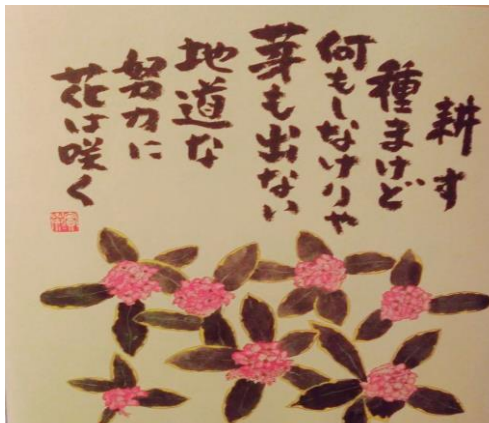 耕す
種まけど
何もしなけりゃ
芽も出ない
地道な
努力に
花は咲く